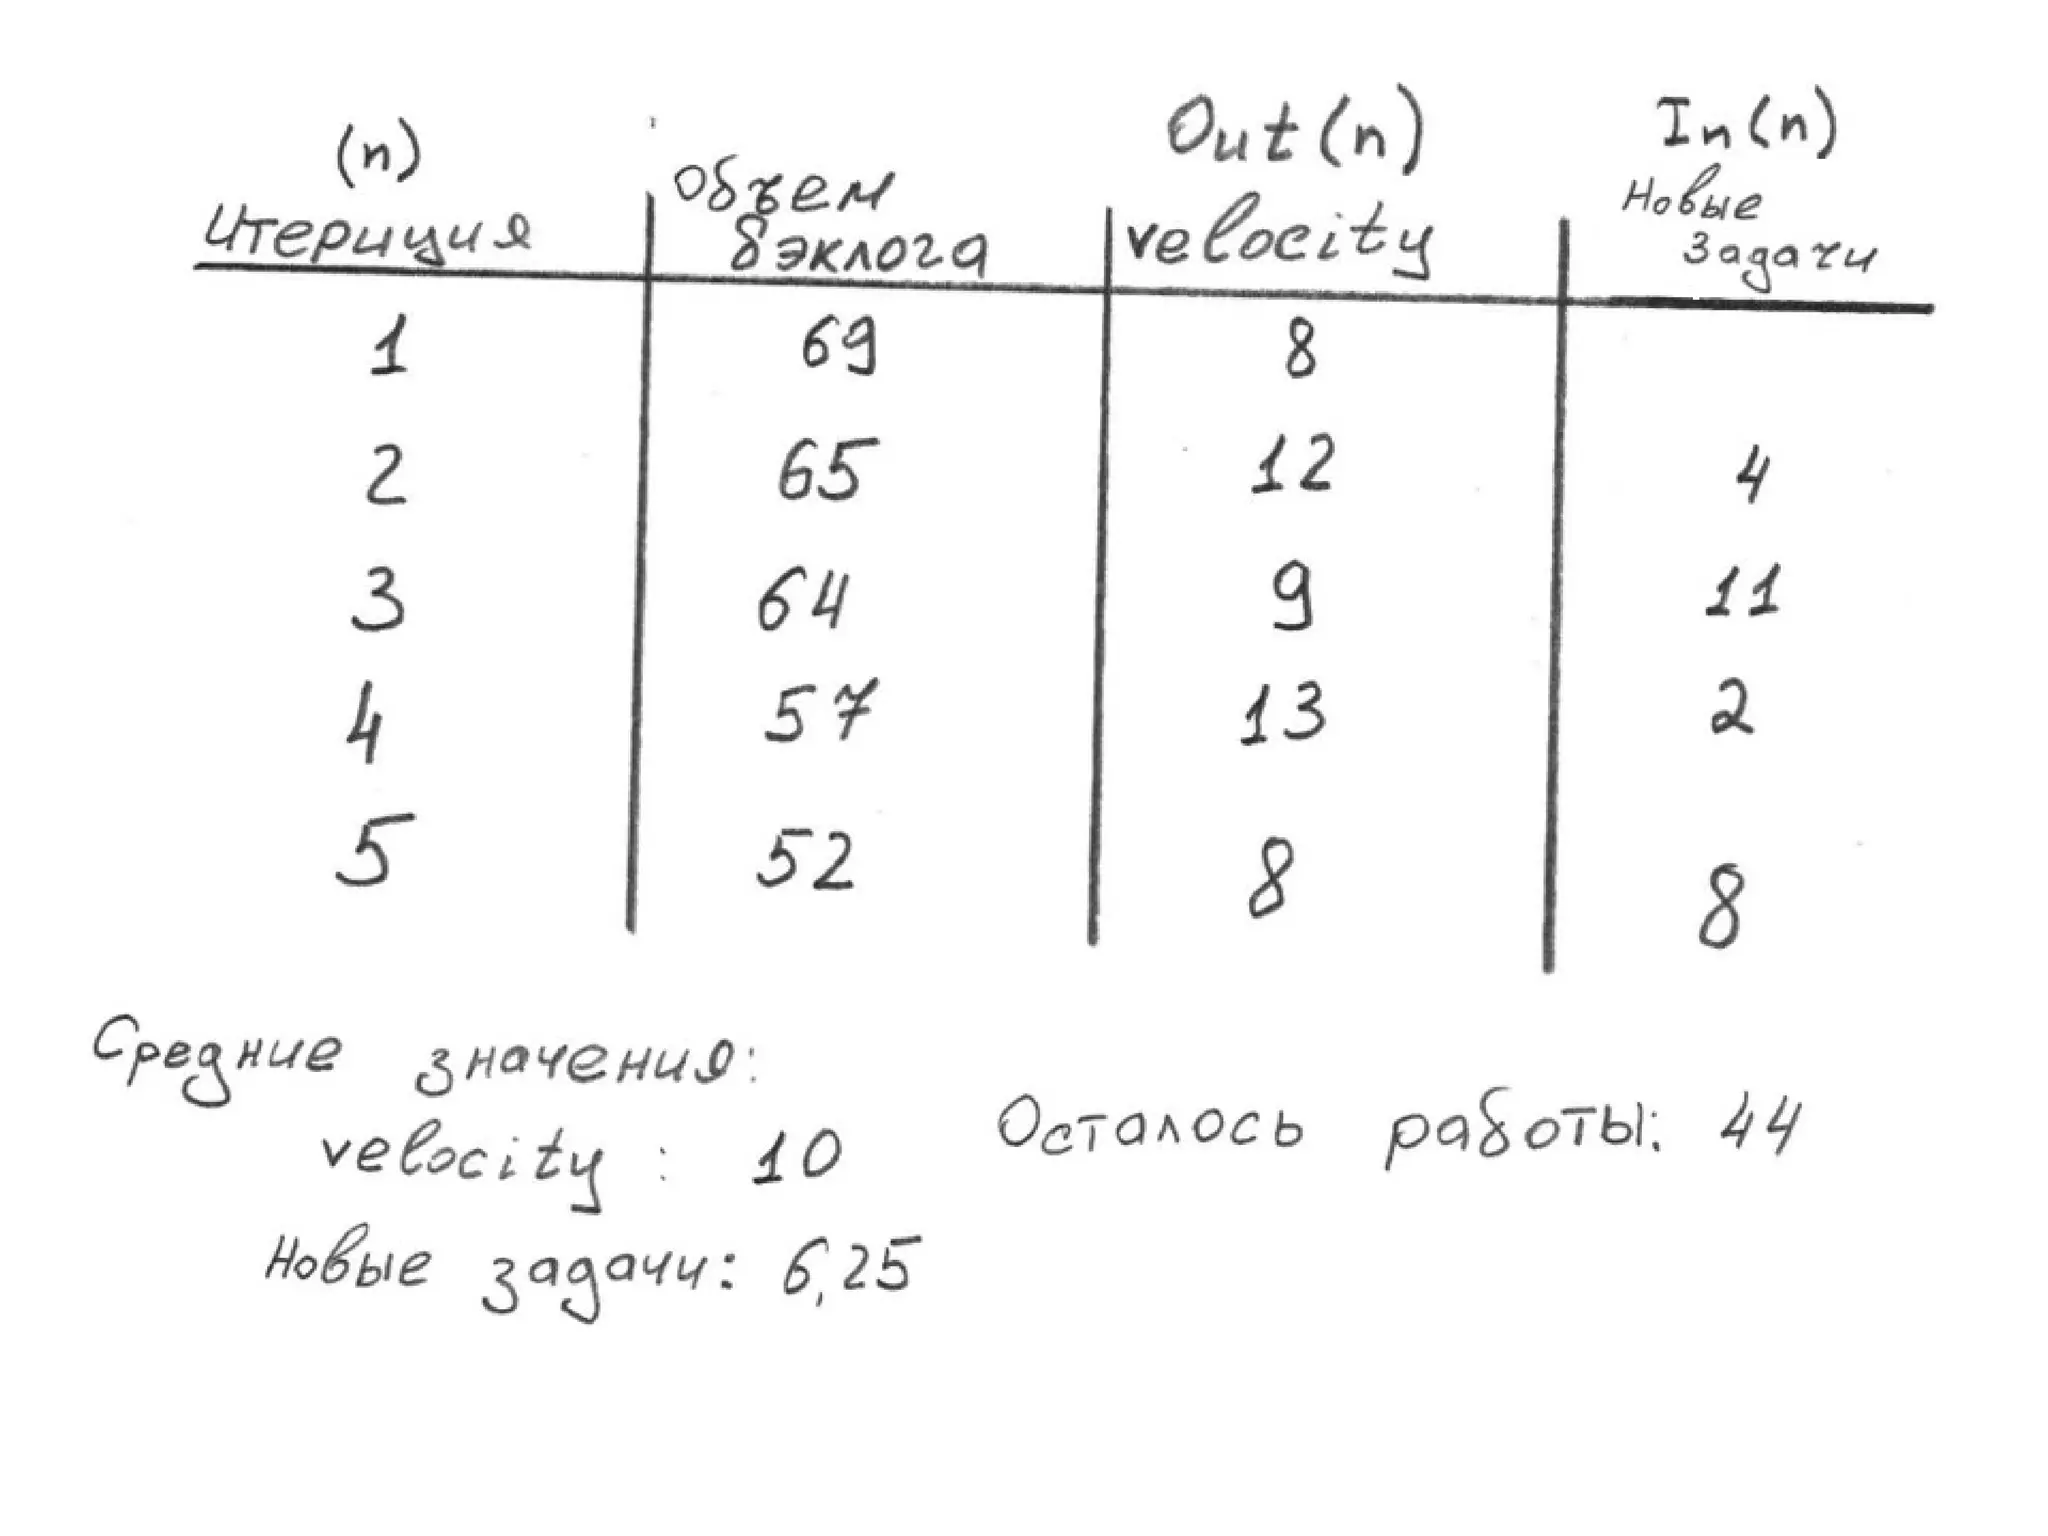 (n) Out(n) In(n)
Итериция Объем бэклога velocity Новые задачи
1 69 8
2 65 12 4
3 64 9 11
4 57 13 2
5 52 8 8
Средние значения:
velocity : 10 Осталось работы: 44
Новые задачи: 6,25